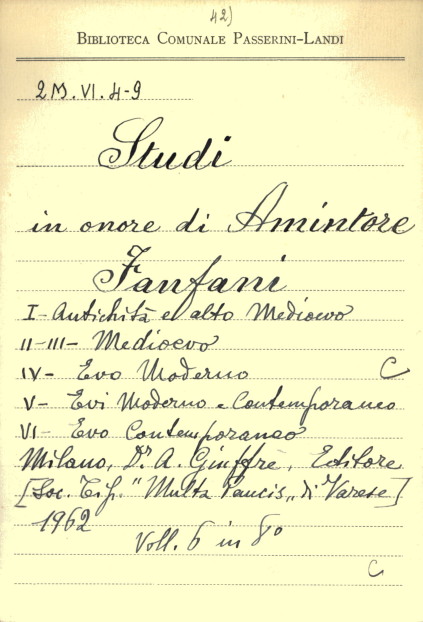 42)
BIBLIOTECA COMUNALE PASSERINI-LANDI
2M.VI.4-9
Studi
in onore di Amintore
Fanfani
I - Antichità e alto Medioevo
II-III- Medioevo
IV- Evo Moderno C
V- Evi Moderno e Contemporaneo
VI- Evo Contemporaneo
Milano, Dr. A. Giuffrè, Editore
[Soc. Tip. "Multa Paucis„ di Varese]
1962
Voll. 6 in 8°
C